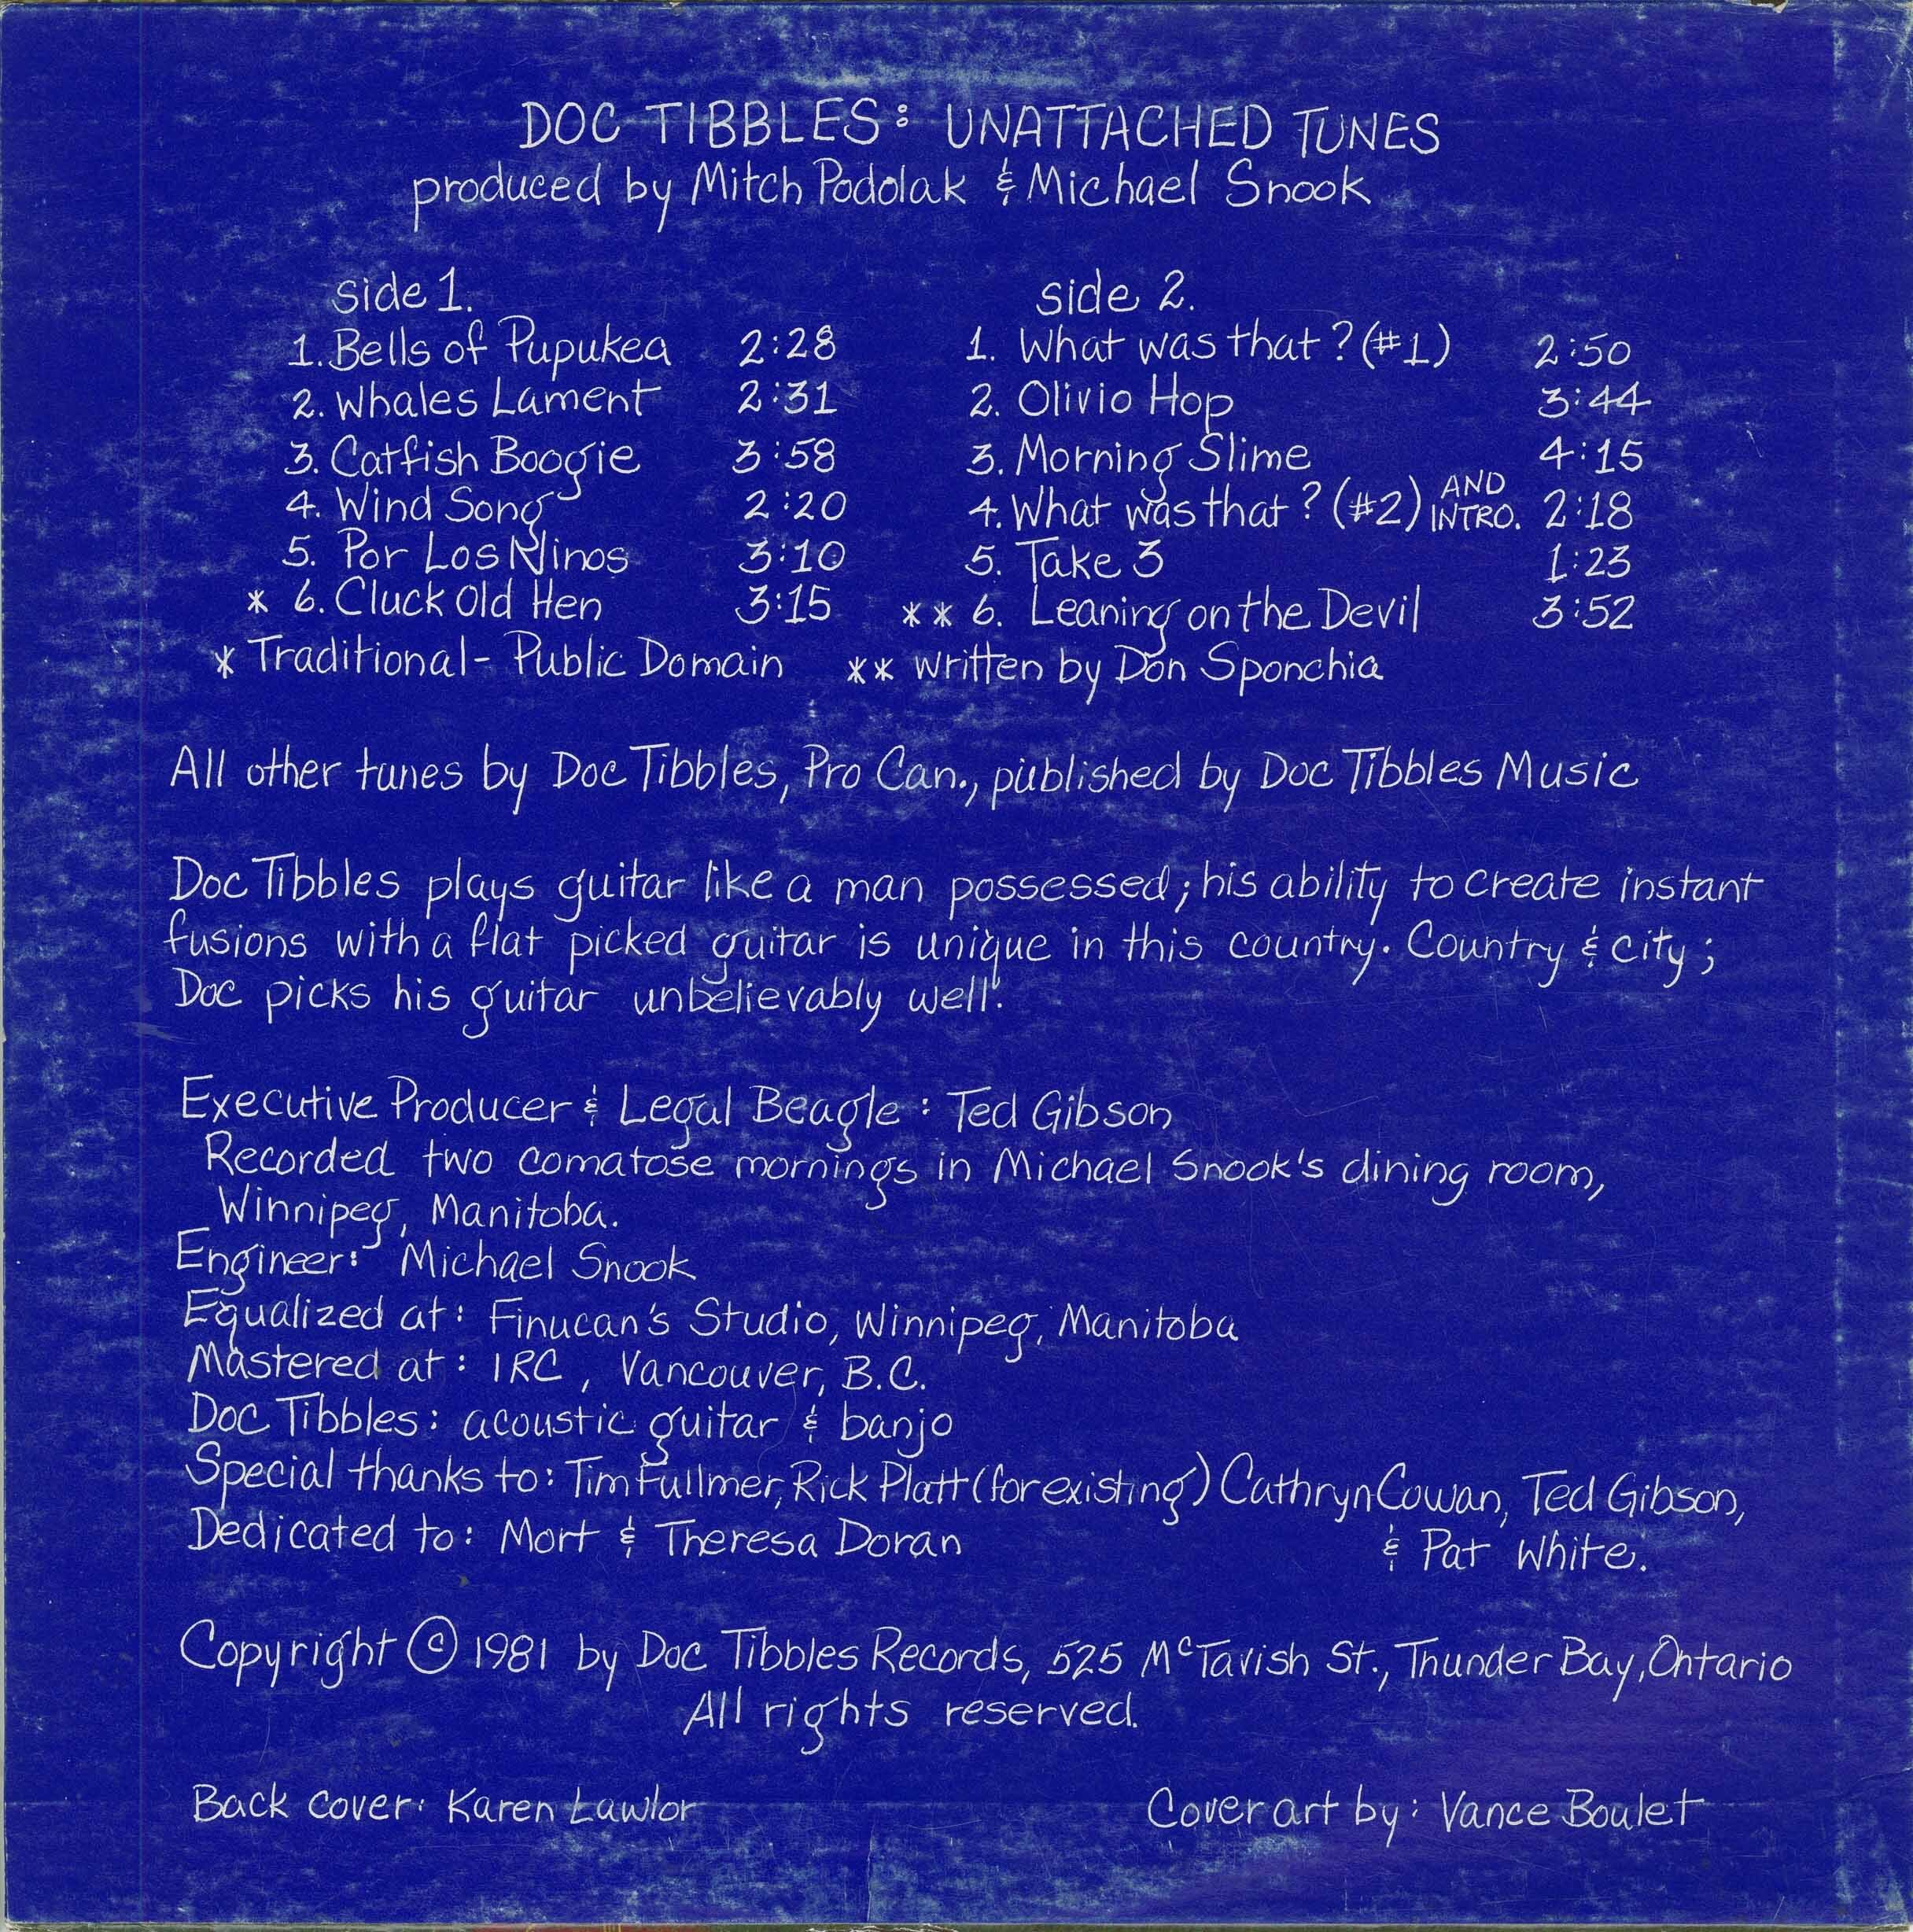 DOC TIBBLES: UNATTACHED TUNES
produced by Mitch Podolak & Michael Snook
side 1.
1. Bells of Pupukea 2:28
2. Whales Lament 2:31
3. Catfish Boogie 3:58
4. Wind Song 2:20
5. Por Los Ninos 3:10
* 6. Cluck Old Hen 3:15
* Traditional - Public Domain
side 2.
1. What was that? (#1) 2:50
2. Olivio Hop 3:44
3. Morning Slime 4:15
4. What was that? (#2) AND INTRO. 2:18
5. Take 3 1:23
** 6. Leaning on the Devil 3:52
** written by Don Sponchia
All other tunes by Doc Tibbles, Pro Can., published by Doc Tibbles Music
Doc Tibbles plays guitar like a man possessed; his ability to create instant
fusions with a flat picked guitar is unique in this country. Country & city;
Doc picks his guitar unbelievably well!
Executive Producer & Legal Beagle: Ted Gibson
Recorded two comatose mornings in Michael Snook's dining room,
Winnipeg, Manitoba.
Engineer: Michael Snook
Equalized at: Finucan's Studio, Winnipeg, Manitoba
Mastered at: IRC, Vancouver, B.C.
Doc Tibbles: acoustic guitar & banjo
Special thanks to: Tim Fullmer, Rick Platt (for existing) Cathryn Cowan, Ted Gibson,
& Pat White.
Dedicated to: Mort & Theresa Doran
Copyright © 1981 by Doc Tibbles Records, 525 McTavish St., Thunder Bay, Ontario
All rights reserved.
Back cover: Karen Lawlor
Cover art by: Vance Boulet